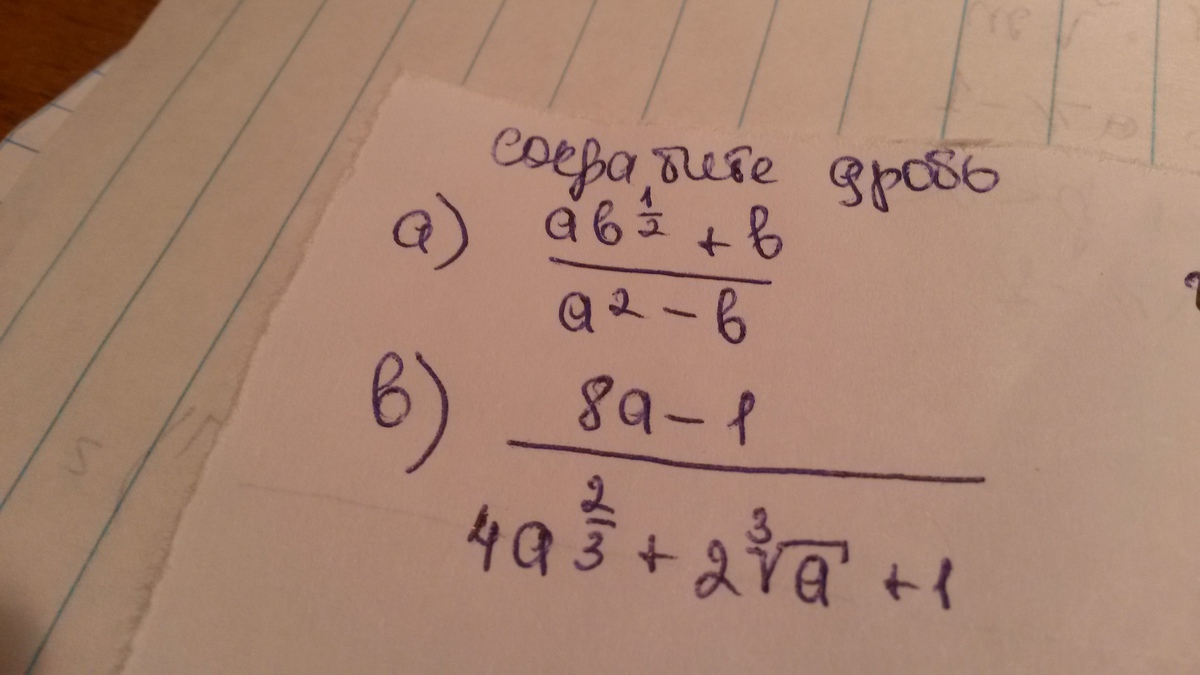 сократите дробь
а) (ab^(1/2) + b) / (a² - b)
в) (8a - 1) / (4a^(2/3) + 2∛a + 1)